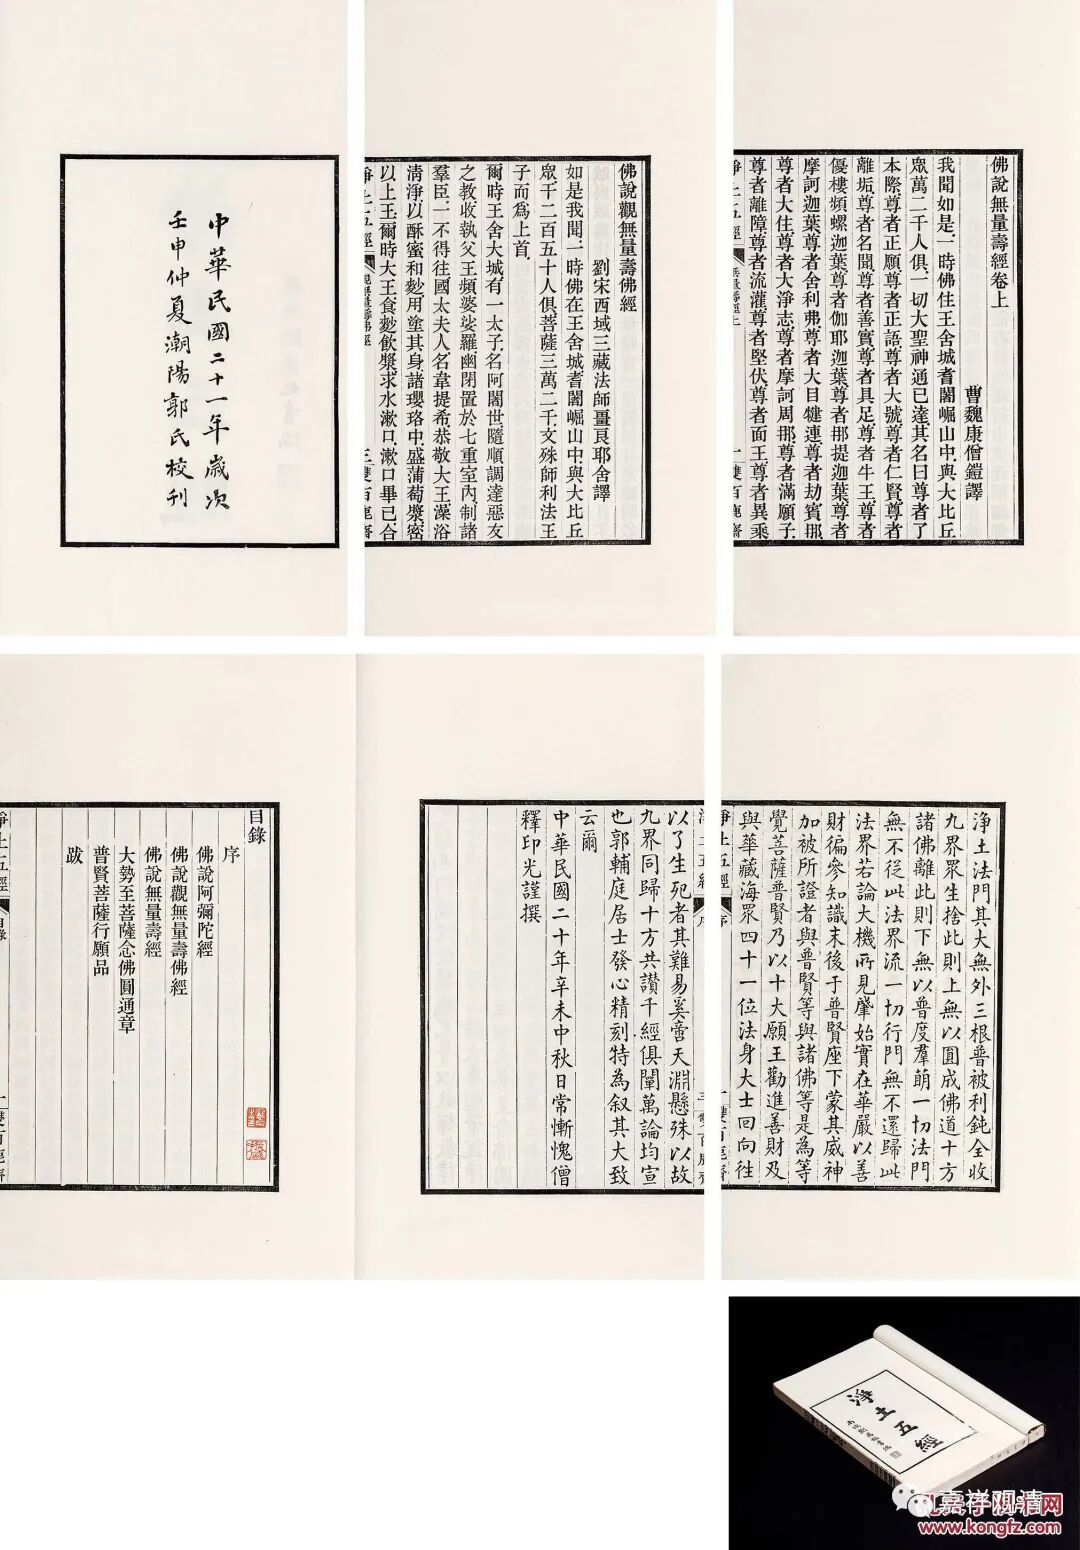 佛說無量壽經卷上
曹魏康僧鎧譯
我聞如是一時佛住王舍城耆闍崛山中與大比丘
眾萬二千人俱一切大聖神通已達其名曰尊者了
本際尊者正願尊者正語尊者大號尊者仁賢尊者
離垢尊者名聞尊者善實尊者具足尊者牛王尊者
優樓頻螺迦葉尊者伽耶迦葉尊者那提迦葉尊者
摩訶迦葉尊者舍利弗尊者大目犍連尊者劫賓那
尊者大住尊者大淨志尊者摩訶周那尊者滿願子
尊者離障尊者流灌尊者堅伏尊者面王尊者異乘
淨土五經 無量壽經上 一 雙百鹿齋
佛說觀無量壽佛經
劉宋西域三藏法師畺良耶舍譯
如是我聞一時佛在王舍城耆闍崛山中與大比丘
眾千二百五十人俱菩薩三萬二千文殊師利法王
子而為上首
爾時王舍大城有一太子名阿闍世隨順調達惡友
之教收執父王頻婆娑羅幽閉置於七重室內制諸
羣臣一不得往國太夫人名韋提希恭敬大王澡浴
清淨以酥蜜和麨用塗其身諸瓔珞中盛蒲萄漿密
以上王爾時大王食麨飲漿求水漱口漱口畢已合
淨土五經 觀無量壽佛經 三 雙百鹿齋
中華民國二十一年歲次
壬申仲夏潮陽郭氏校刊
淨土法門其大無外三根普被利鈍全收
九界眾生捨此則上無以圓成佛道十方
諸佛離此則下無以普度羣萌一切法門
無不從此法界流一切行門無不還歸此
法界若論大機所見肇始實在華嚴以善
財徧參知識末後于普賢座下蒙其威神
加被所證者與普賢等與諸佛等是為等
覺菩薩普賢乃以十大願王勸進善財及
與華藏海眾四十一位法身大士回向往
淨土五經 序 一 雙百鹿齋
淨土五經 序 三 雙百鹿齋
以了生死者其難易奚啻天淵懸殊以故
九界同歸十方共讚千經俱闡萬論均宣
也郭輔庭居士發心精刻特為叙其大致
云爾
中華民國二十年辛未中秋日常慚愧僧
釋印光謹撰
目錄
序
佛說阿彌陀經
佛說觀無量壽佛經
佛說無量壽經
大勢至菩薩念佛圓通章
普賢菩薩行願品
跋
淨土五經 目錄 一 雙百鹿齋
淨土五經
嘉祥閱清
www.kongfz.com